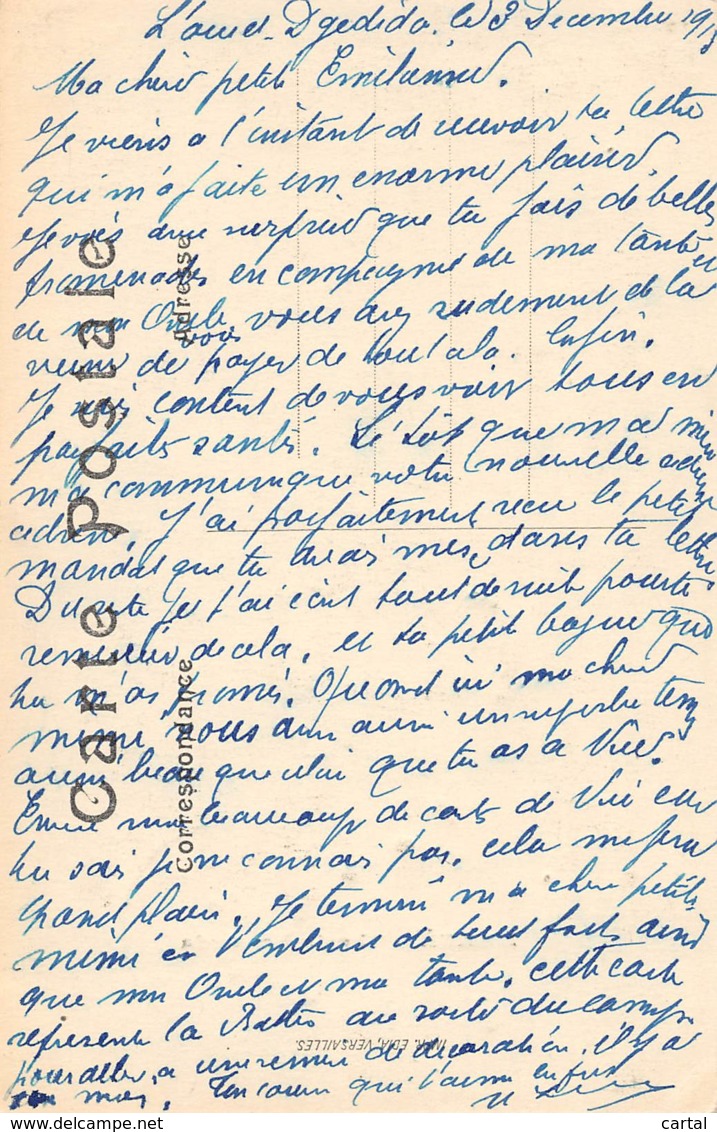 L'oued-Dgedida. le 3 Decembre 19
Ma cheri petite Emilienne.
Je viens a l'instant de recevoir ta lettre
qui m'a faite un enorme plaisir.
Je vois que tu fais de belles
promenades en compagnie de ma tante et
de mon Oncle, vous avez rudement de la
veine de vous payer de tout cela. Enfin.
Je suis content de vous voir tous en
parfaites santés. Si tôt que ma
ma communique votre nouvelle
adresse. J'ai parfaitement recu le petit
mandat que tu avais mes dans ta lettre
Du reste je t'ai écrit tout de suite pour te
remercier de cela, et ta petite bague que
tu m'as promis. Quand ici ma cheri
mimi, nous avons aussi un superbe temps
aussi beau que celui que tu as a Vire.
Envoi moi beaucoup de cartes de Vire car
tu sais je ne connais pas. cela me fera
grand plaisir. Je termine ma chere petite
mimi en t'embrassant de tout fort, ainsi
que mon Oncle et ma tante. cette carte
represente la du camp
pour aller a une remise de décoration. il y a
mois. Ton cousin qui t'aime
Carte Postale
Correspondance
Adresse
IMPR. EDIA, VERSAILLES.
cartal